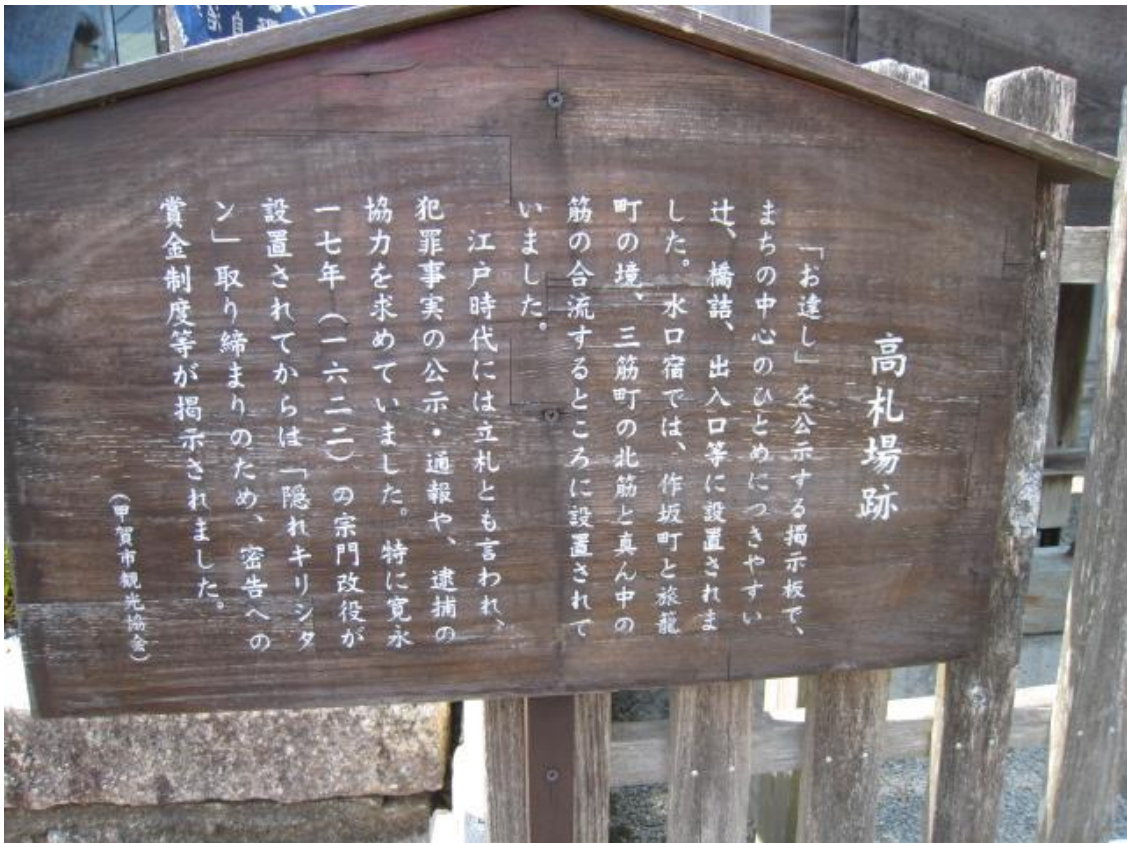 高札場跡
「お達し」を公示する掲示板で、
まちの中心のひとめにつきやすい
辻、橋詰、出入口等に設置されま
した。水口宿では、作坂町と旅籠
町の境、三筋町の北筋と真ん中の
筋の合流するところに設置されて
いました。
江戸時代には立札とも言われ、
犯罪事実の公示・通報や、逮捕の
協力を求めていました。特に寛永
一七年（一六二二）の宗門改役が
設置されてからは「隠れキリシタ
ン」取り締まりのため、密告への
賞金制度等が掲示されました。
（甲賀市観光協会）